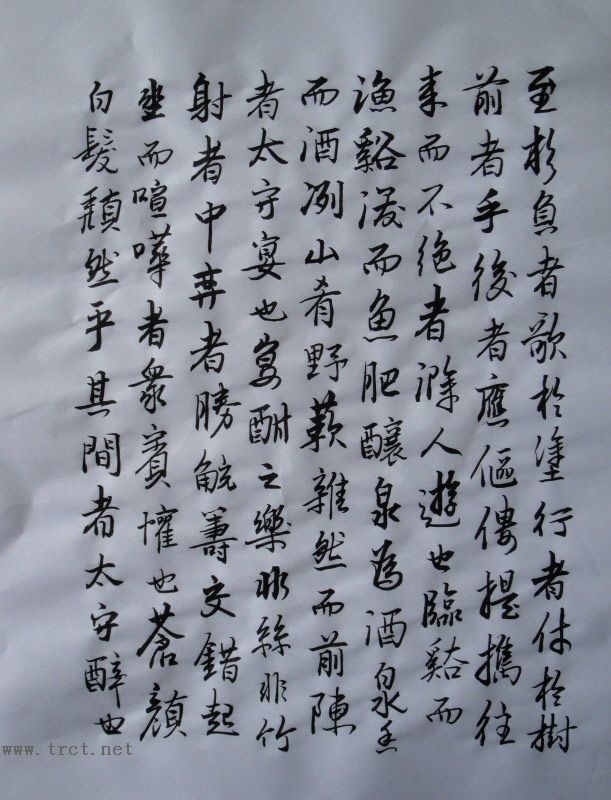 至於負者歌於塗行者休於樹
前者乎後者應傴僂提攜往
來而不絶者滁人遊也臨谿而
漁谿深而魚肥釀泉為酒泉香
而酒冽山肴野蔌雜然而前陳
者太守宴也宴酣之樂非絲非竹
射者中弈者勝觥籌交錯起
坐而喧嘩者衆賓懽也蒼顔
白髮頹然乎其間者太守醉也
www.trct.net